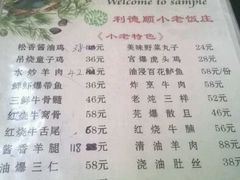 Welcome to sample
利德顺小老饭庄
《小老特色》
松香酱油鸡 38元
吊烧童子鸡 36元
水炒羊肉 42元
鲜虾爆带鱼 36元
三鲜牛骨髓 46元
红烧牛窝骨 58元
红烧牛舌尾 58元
酱香羊腿 118元
油爆三仁 58元
美味野菜丸子 24元
官爆虎头鸡 28元
油浸百花鲈鱼 58元/份
炸烹牛肉 58元
老炖三样 52元
芫爆散旦 46元
红烧牛腩 56元
滑溜羊肉 58元
浇油肚丝 38元